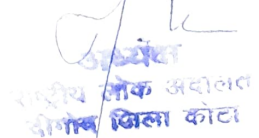 अध्यक्ष
राष्ट्रीय लोक अदालत
दीगोद जिला कोटा